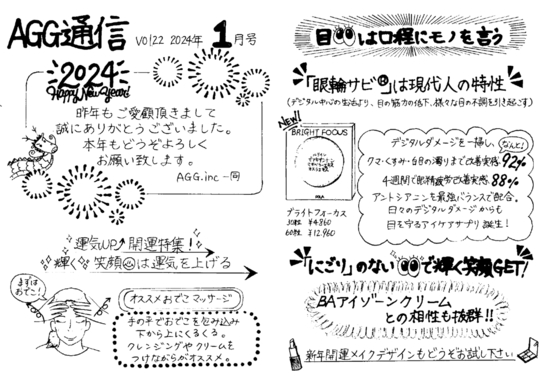 AGG通信
vol22 2024年 1月号
2024
Happy New year!
昨年もご愛顧頂きまして
誠にありがとうございました。
本年もどうぞよろしく
お願い致します。
AGG.inc 一同
運気UP↑開運特集!
輝く笑顔は運気を上げる
まずはおでこ!
オススメおでこマッサージ
手の平でおでこを包み込み
下から上にくるくる。
クレンジングやクリームを
つけながらがオススメ。
目は口程にモノを言う
「眼輪サビ®」は現代人の特性
(デジタル中心の生活より、目の筋力の低下、様々な目の不調を引き起こす)
NEW!
BRIGHT FOCUS
ブライトフォーカス
30粒 ¥4,860
60粒 ¥12,960
デジタルダメージを一掃し
なんと!
クマ・くすみ・白目の濁りまで改善実感92%
4週間で眼精疲労改善実感88%
アントシアニンを最強バランスで配合。
日々のデジタルダメージからも
目を守るアイケアサプリ誕生!
「にごり」のない で輝く笑顔GET!
BAアイゾーンクリーム
との相性も抜群!!
新年開運メイクデザインもどうぞお試し下さい